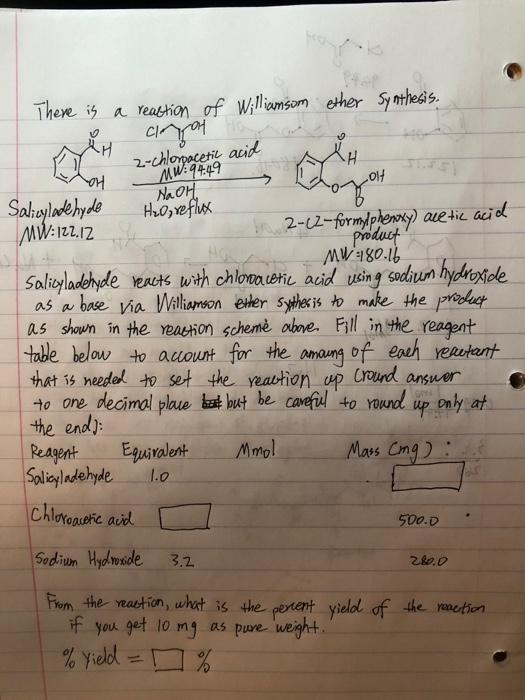 There is a reaction of Williamsom ether Synthesis.
Cl OH
O
H
OH
2-chloroacetic acid
MW: 94.49
NaOH
H2O, reflux
Salicyladehyde
MW: 122.12
O
H
OH
O
O
2-(2-formylphenoxy) acetic acid
product
MW: 180.16
Salicyladehyde reacts with chloroacetic acid using sodium hydroxide
as a base via Williamson ether sythesis to make the product
as shown in the reaction scheme above. Fill in the reagent
table below to account for the amoung of each reactant
that is needed to set the reaction up (round answer
to one decimal place but but be careful to round up only at
the end):
Reagent Equivalent Mmol Mass (mg) :
Salicyladehyde 1.0
Chloroacetic acid 500.0
Sodium Hydroxide 3.2 280.0
From the reaction, what is the percent yield of the reaction
if you get 10 mg as pure weight.
% Yield = %